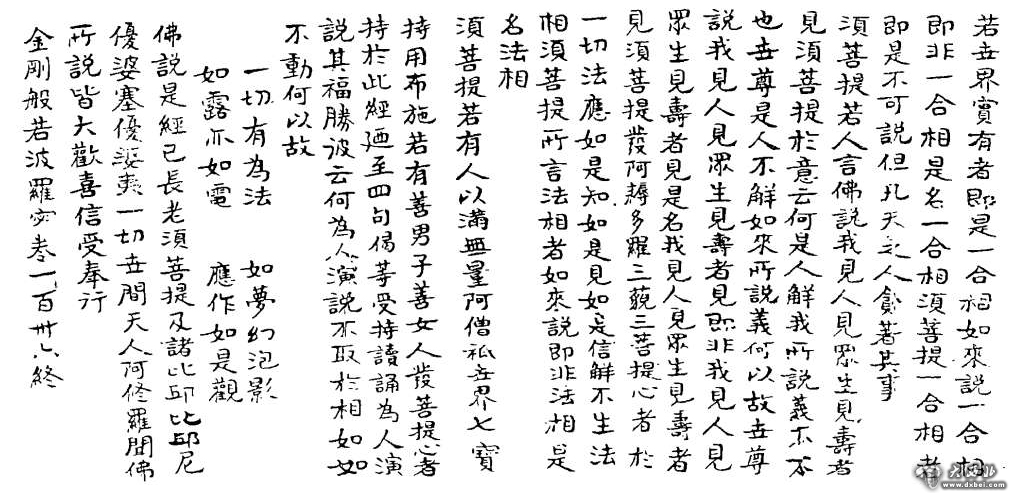 若世界實有者即是一合相如來說一合相
即非一合相是名一合相須菩提一合相者
即是不可說但凡夫之人貪著其事
須菩提若人言佛說我見人見眾生見壽者
見須菩提於意云何是人解我所說義不不
也世尊是人不解如來所說義何以故世尊
說我見人見眾生見壽者見即非我見人見
眾生見壽者見是名我見人見眾生見壽者
見須菩提發阿耨多羅三藐三菩提心者於
一切法應如是知如是見如是信解不生法
相須菩提所言法相者如來說即非法相是
名法相
須菩提若有人以滿無量阿僧祇世界七寶
持用布施若有善男子善女人發菩提心者
持於此經廼至四句偈等受持讀誦為人演
說其福勝彼云何為人演說不取於相如如
不動何以故
一切有為法 如夢幻泡影
如露亦如電 應作如是觀
佛說是經已長老須菩提及諸比邱比邱尼
優婆塞優婆夷一切世間天人阿修羅聞佛
所說皆大歡喜信受奉行
金剛般若波羅蜜卷一百卅六終
www.dxbei.com